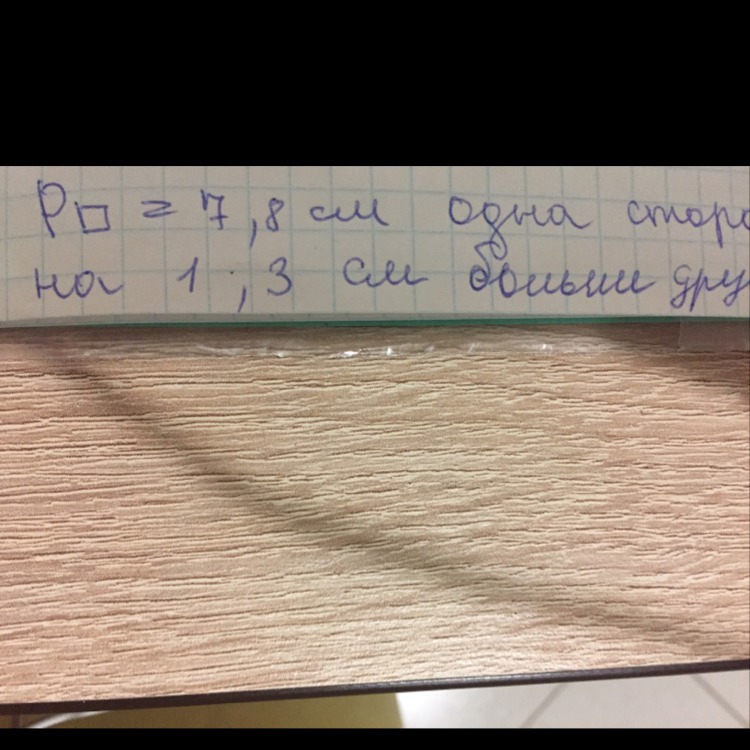 P□ = 7,8 см одна сторо
на 1,3 см больше дру